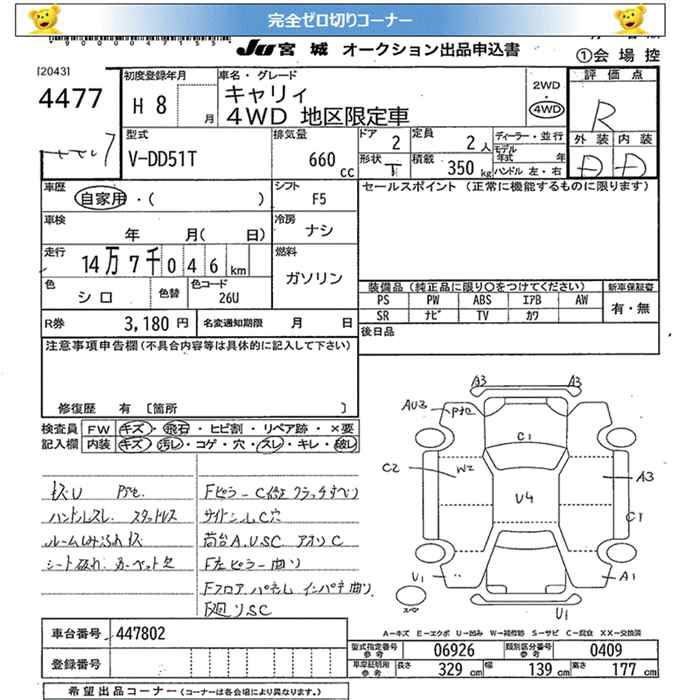 完全ゼロ切りコーナー
JU 宮城 オークション出品申込書
①会場控
[2043]
4477
初度登録年月
H 8 月
車名・グレード
キャリィ
4WD 地区限定車
2WD
・
4WD
評価点
R
外装 内装
D D
型式
V-DD51T
排気量
660 cc
ドア 2
形状 T
定員 2 人
積載 350 kg
ディーラー・並行
モデル年式 年
ハンドル 左・右
車歴
自家用・( )
シフト
F5
セールスポイント (正常に機能するものに限ります)
車検
年 月( 日)
冷房
ナシ
走行
14万7千046km
燃料
ガソリン
色
シロ
色替
色コード
26U
装備品 (純正品に限り○をつけてください)
新車保証書
PS PW ABS エアB AW
SR ナビ TV カワ
有・無
R券 3,180 円
名変通知期限 月 日
後日品
注意事項申告欄 (不具合内容等は具体的に記入して下さい)
修復歴 有 〔箇所 〕
検査員 記入欄
FW キズ・飛石・ヒビ割・リペア跡・×要
内装 キズ・汚レ・コゲ・穴・スレ・キレ・破レ
ハンドルスレ スタッドレス
シート破れ カーペット欠
Fピラー C
荷台 A.U.SC アオリ C
F左ピラー曲り
Fフロア パネル インパネ曲り
A3 A3
AU3
C1
C2
W2
U4
A3
C1
U1
A1
U1
A=キズ E=エクボ U=凹み W=補修跡 S=サビ C=腐食 XX=交換済
車台番号 447802
登録番号
型式指定番号 参考 06926
類別区分番号 参考 0409
車庫証明用 参考 長さ 329 cm 幅 139 cm 高さ 177 cm
希望出品コーナー (コーナーは各会場により異なります。)